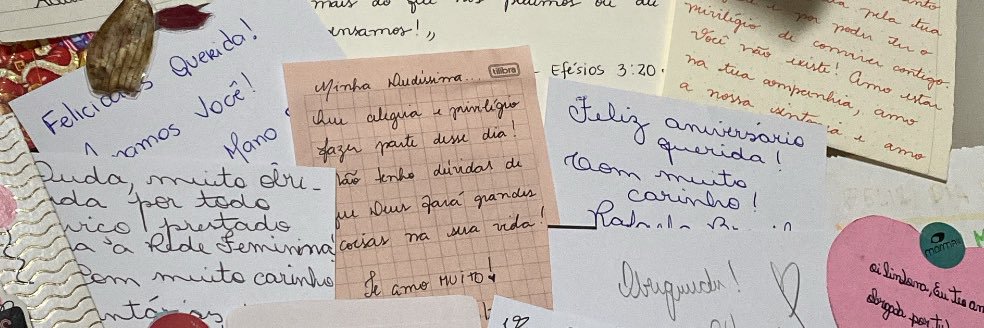 mais do que nos pedimos ou
ensamos!,,
Efésios 3:20.
pela tua
privilégio de conviver contigo.
Você não existe! Amo estar
na tua companhia, amo
a nossa e amo
Felicidades Querida!
amamos você!
Mano
Minha Dudíssima...
tilibra
Que alegria e privilégio
fazer parte desse dia!
Não tenho dúvidas de
que Deus fará grandes
coisas na sua vida!
Te amo MUITO!
Feliz aniversário
querida!
Com muito
carinho!
Duda, muito obri-
da por todo
viço prestado
a à Rede Feminina
Com muito carinho
Obrigada!
oi lindona, Eu te am
obrigada por ti